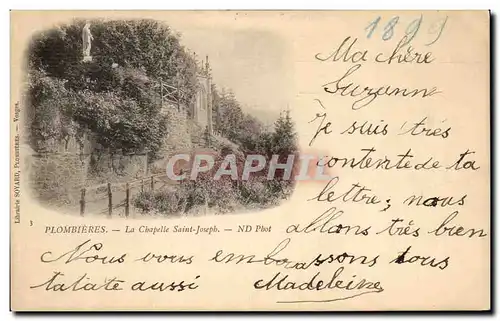 1899
Ma chère
Suzanne
je suis très
contente de ta
lettre; nous
allons très bien
Librairie SOYARD, PLOMBIÈRES. — Vosges.
CPARAMA
3
PLOMBIÈRES. — La Chapelle Saint-Joseph. — ND Phot
Nous vous embrassons tous
tatate aussi Madeleine